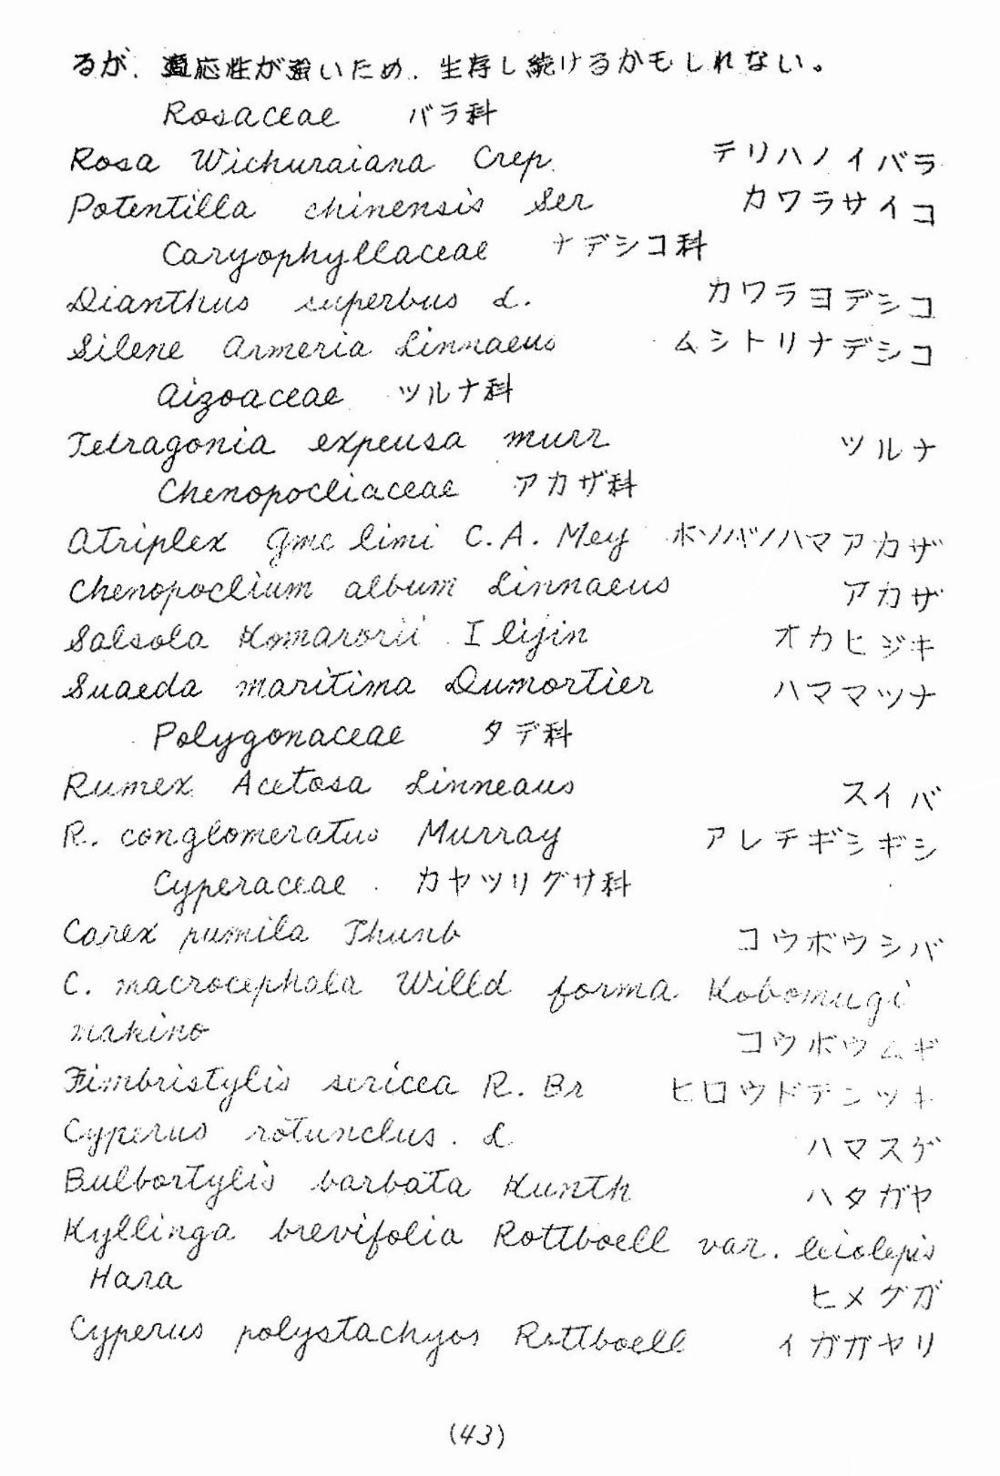 るが、適応性が強いため、生存し続けるかもしれない。
Rosaceae バラ科
Rosa Wichuraiana Crep. テリハノイバラ
Potentilla chinensis Ser カワラサイコ
Caryophyllaceae ナデシコ科
Dianthus superbus L. カワラヨデシコ
Silene Armeria Linnaeus ムシトリナデシコ
Aizoaceae ツルナ科
Tetragonia expeusa murr ツルナ
Chenopocliaceae アカザ科
Atriplex Gme limi C.A. Mey ホソバノハマアカザ
Chenopoclium album Linnaeus アカザ
Salsola Komarorii Ilijin オカヒジキ
Suaeda maritima Dumortier ハママツナ
Polygonaceae タデ科
Rumex Acetosa Linneaus スイバ
R. conglomeratus Murray アレチギシギシ
Cyperaceae カヤツリグサ科
Carex pumila Thunb コウボウシバ
C. macrocephala Willd forma Kobomugi
makino コウボウムギ
Fimbristylis sericea R. Br ヒロウドテンツキ
Cyperus rotunclus. L ハマスゲ
Bulbortylis barbata Kunth ハタガヤ
Kyllinga brevifolia Rottboell var. leiolepis
Hara ヒメグガ
Cyperus polystachyos Rottboell イガガヤリ
(43)